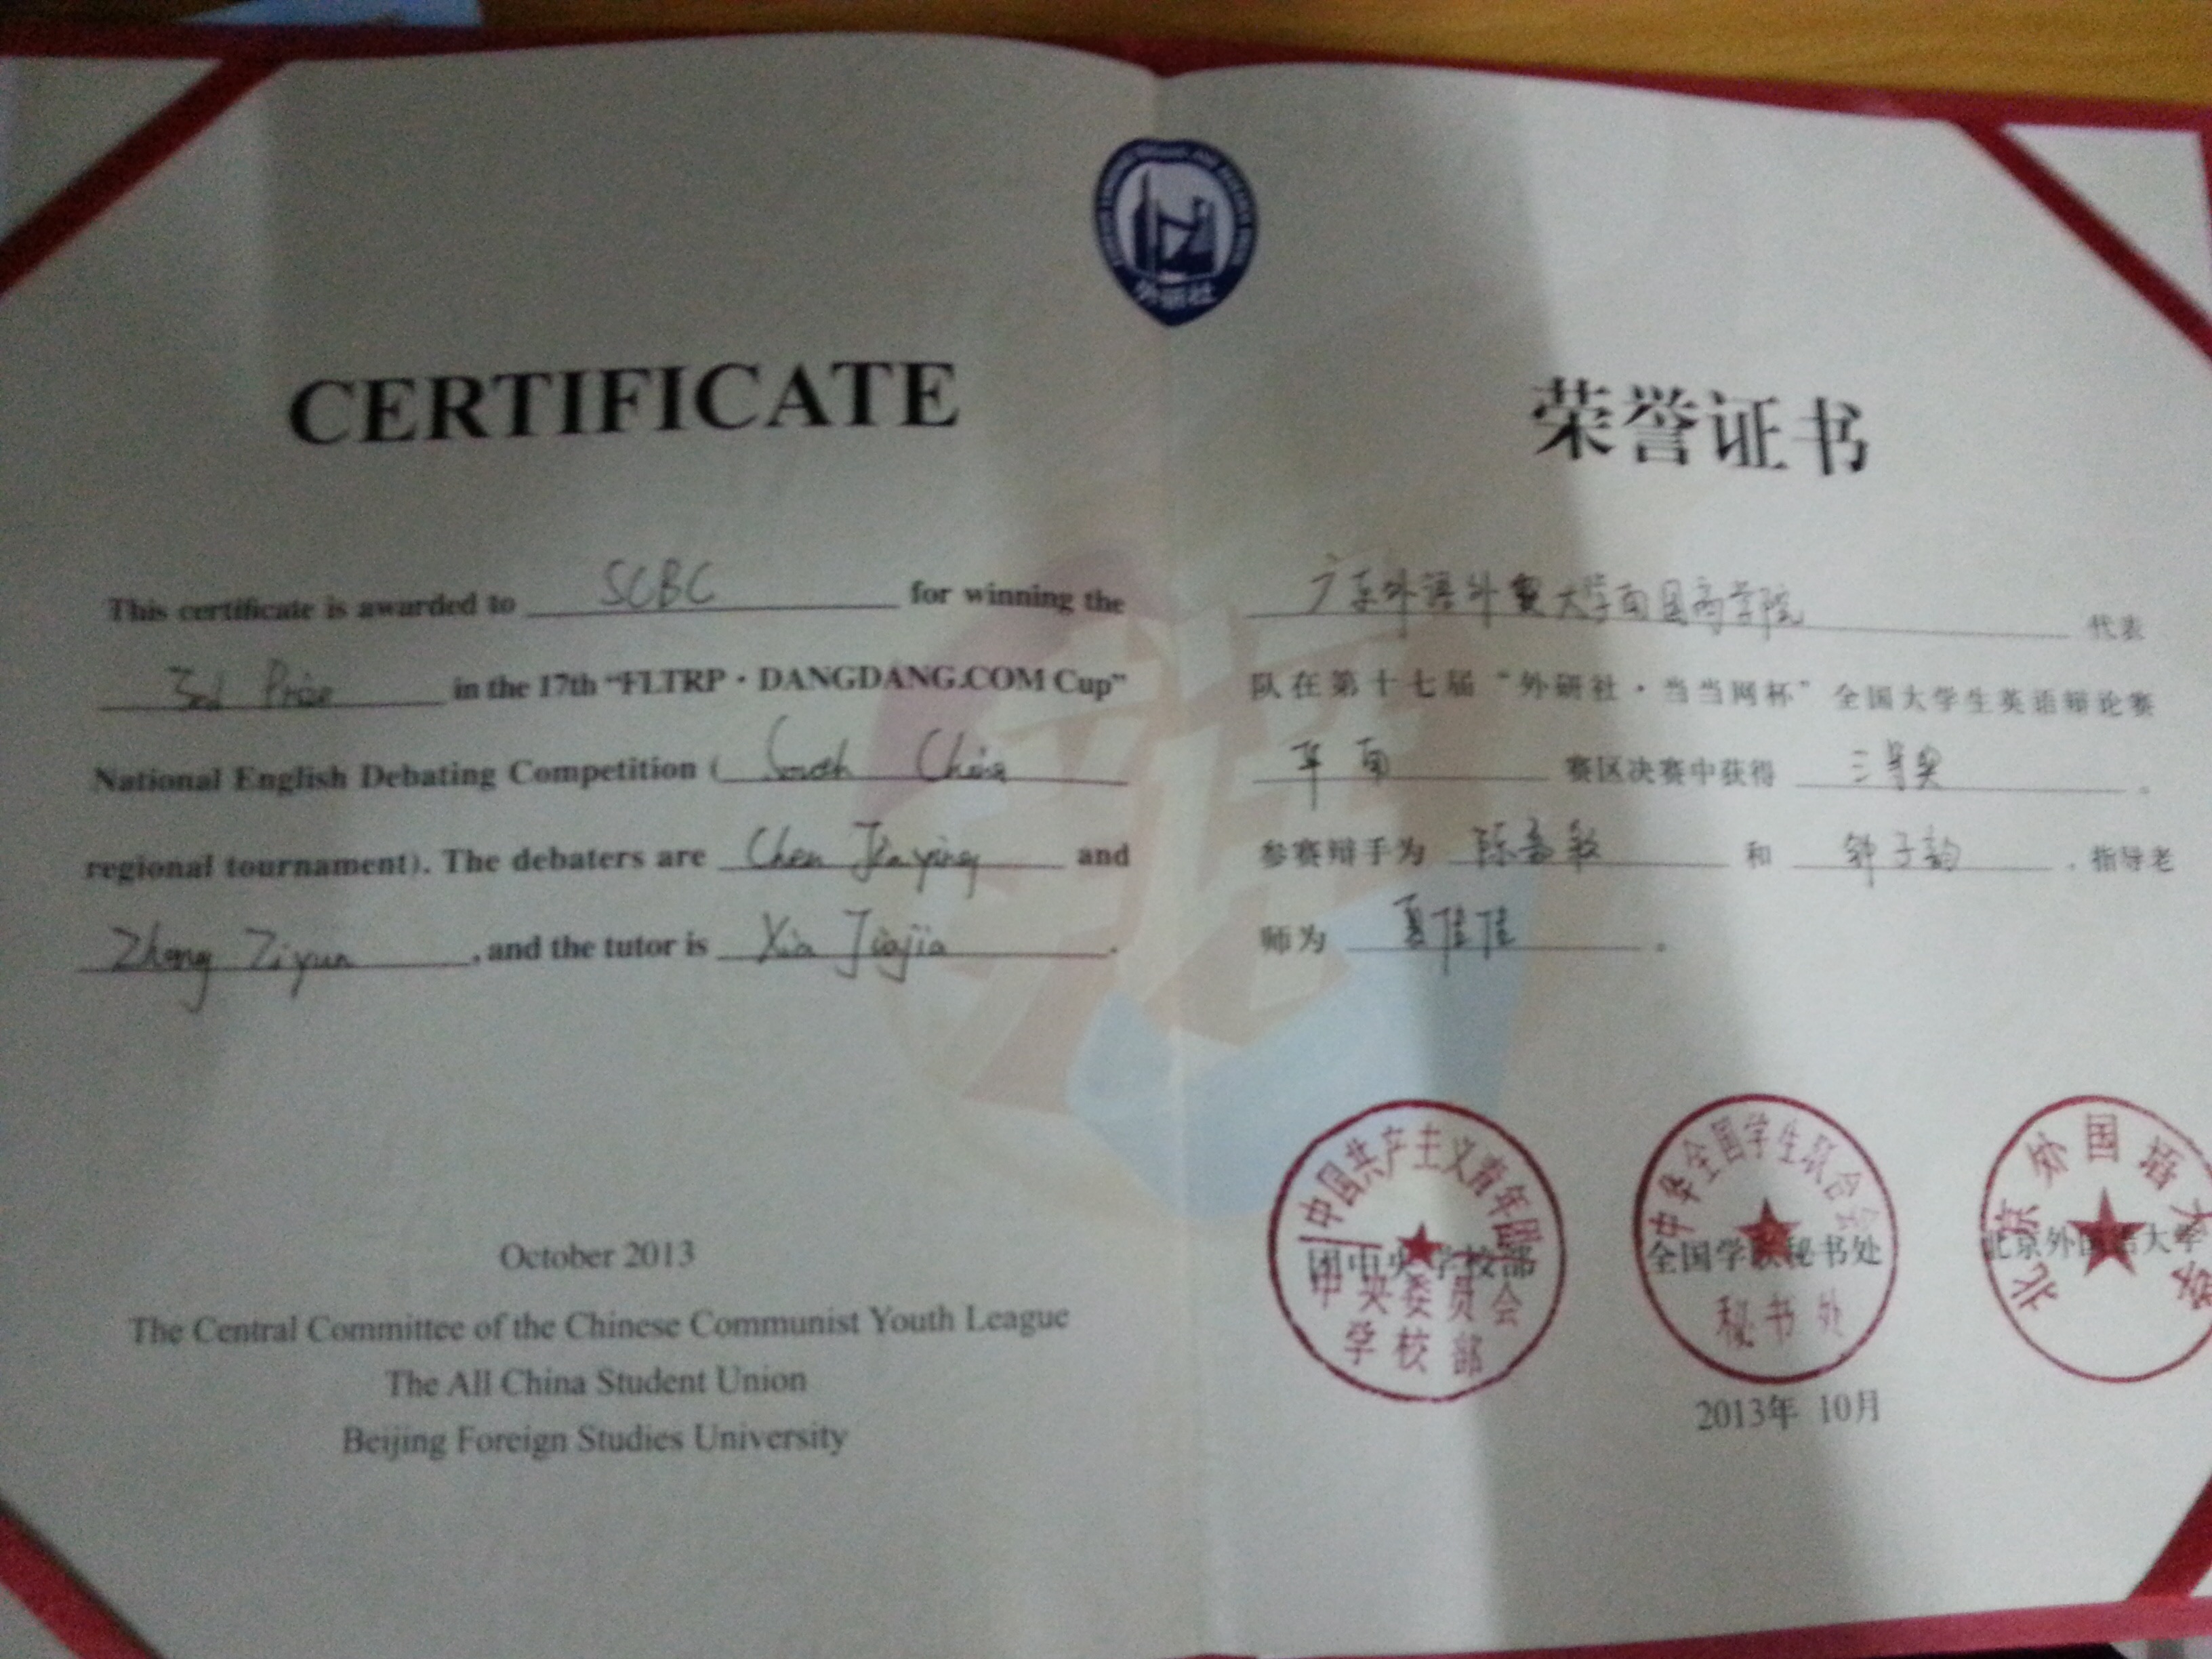 外研社
CERTIFICATE
This certificate is awarded to SCBC for winning the
3rd Prize in the 17th “FLTRP · DANGDANG.COM Cup”
National English Debating Competition ( South China
regional tournament). The debaters are Chen Jiaying and
Zhong Ziyun , and the tutor is Xia Jiajia .
October 2013
The Central Committee of the Chinese Communist Youth League
The All China Student Union
Beijing Foreign Studies University
荣誉证书
广东外语外贸大学南国商学院 代表
队在第十七届“外研社·当当网杯”全国大学生英语辩论赛
华南 赛区决赛中获得 三等奖 。
参赛辩手为 陈 和 钟子韵 ,指导老
师为 夏佳佳 。
中国共产主义青年团
中央委员会
学校部
团中央学校部
中华全国学生联合会
秘书处
全国学联秘书处
北京外国语大学
北京外国语大学
2013年 10月